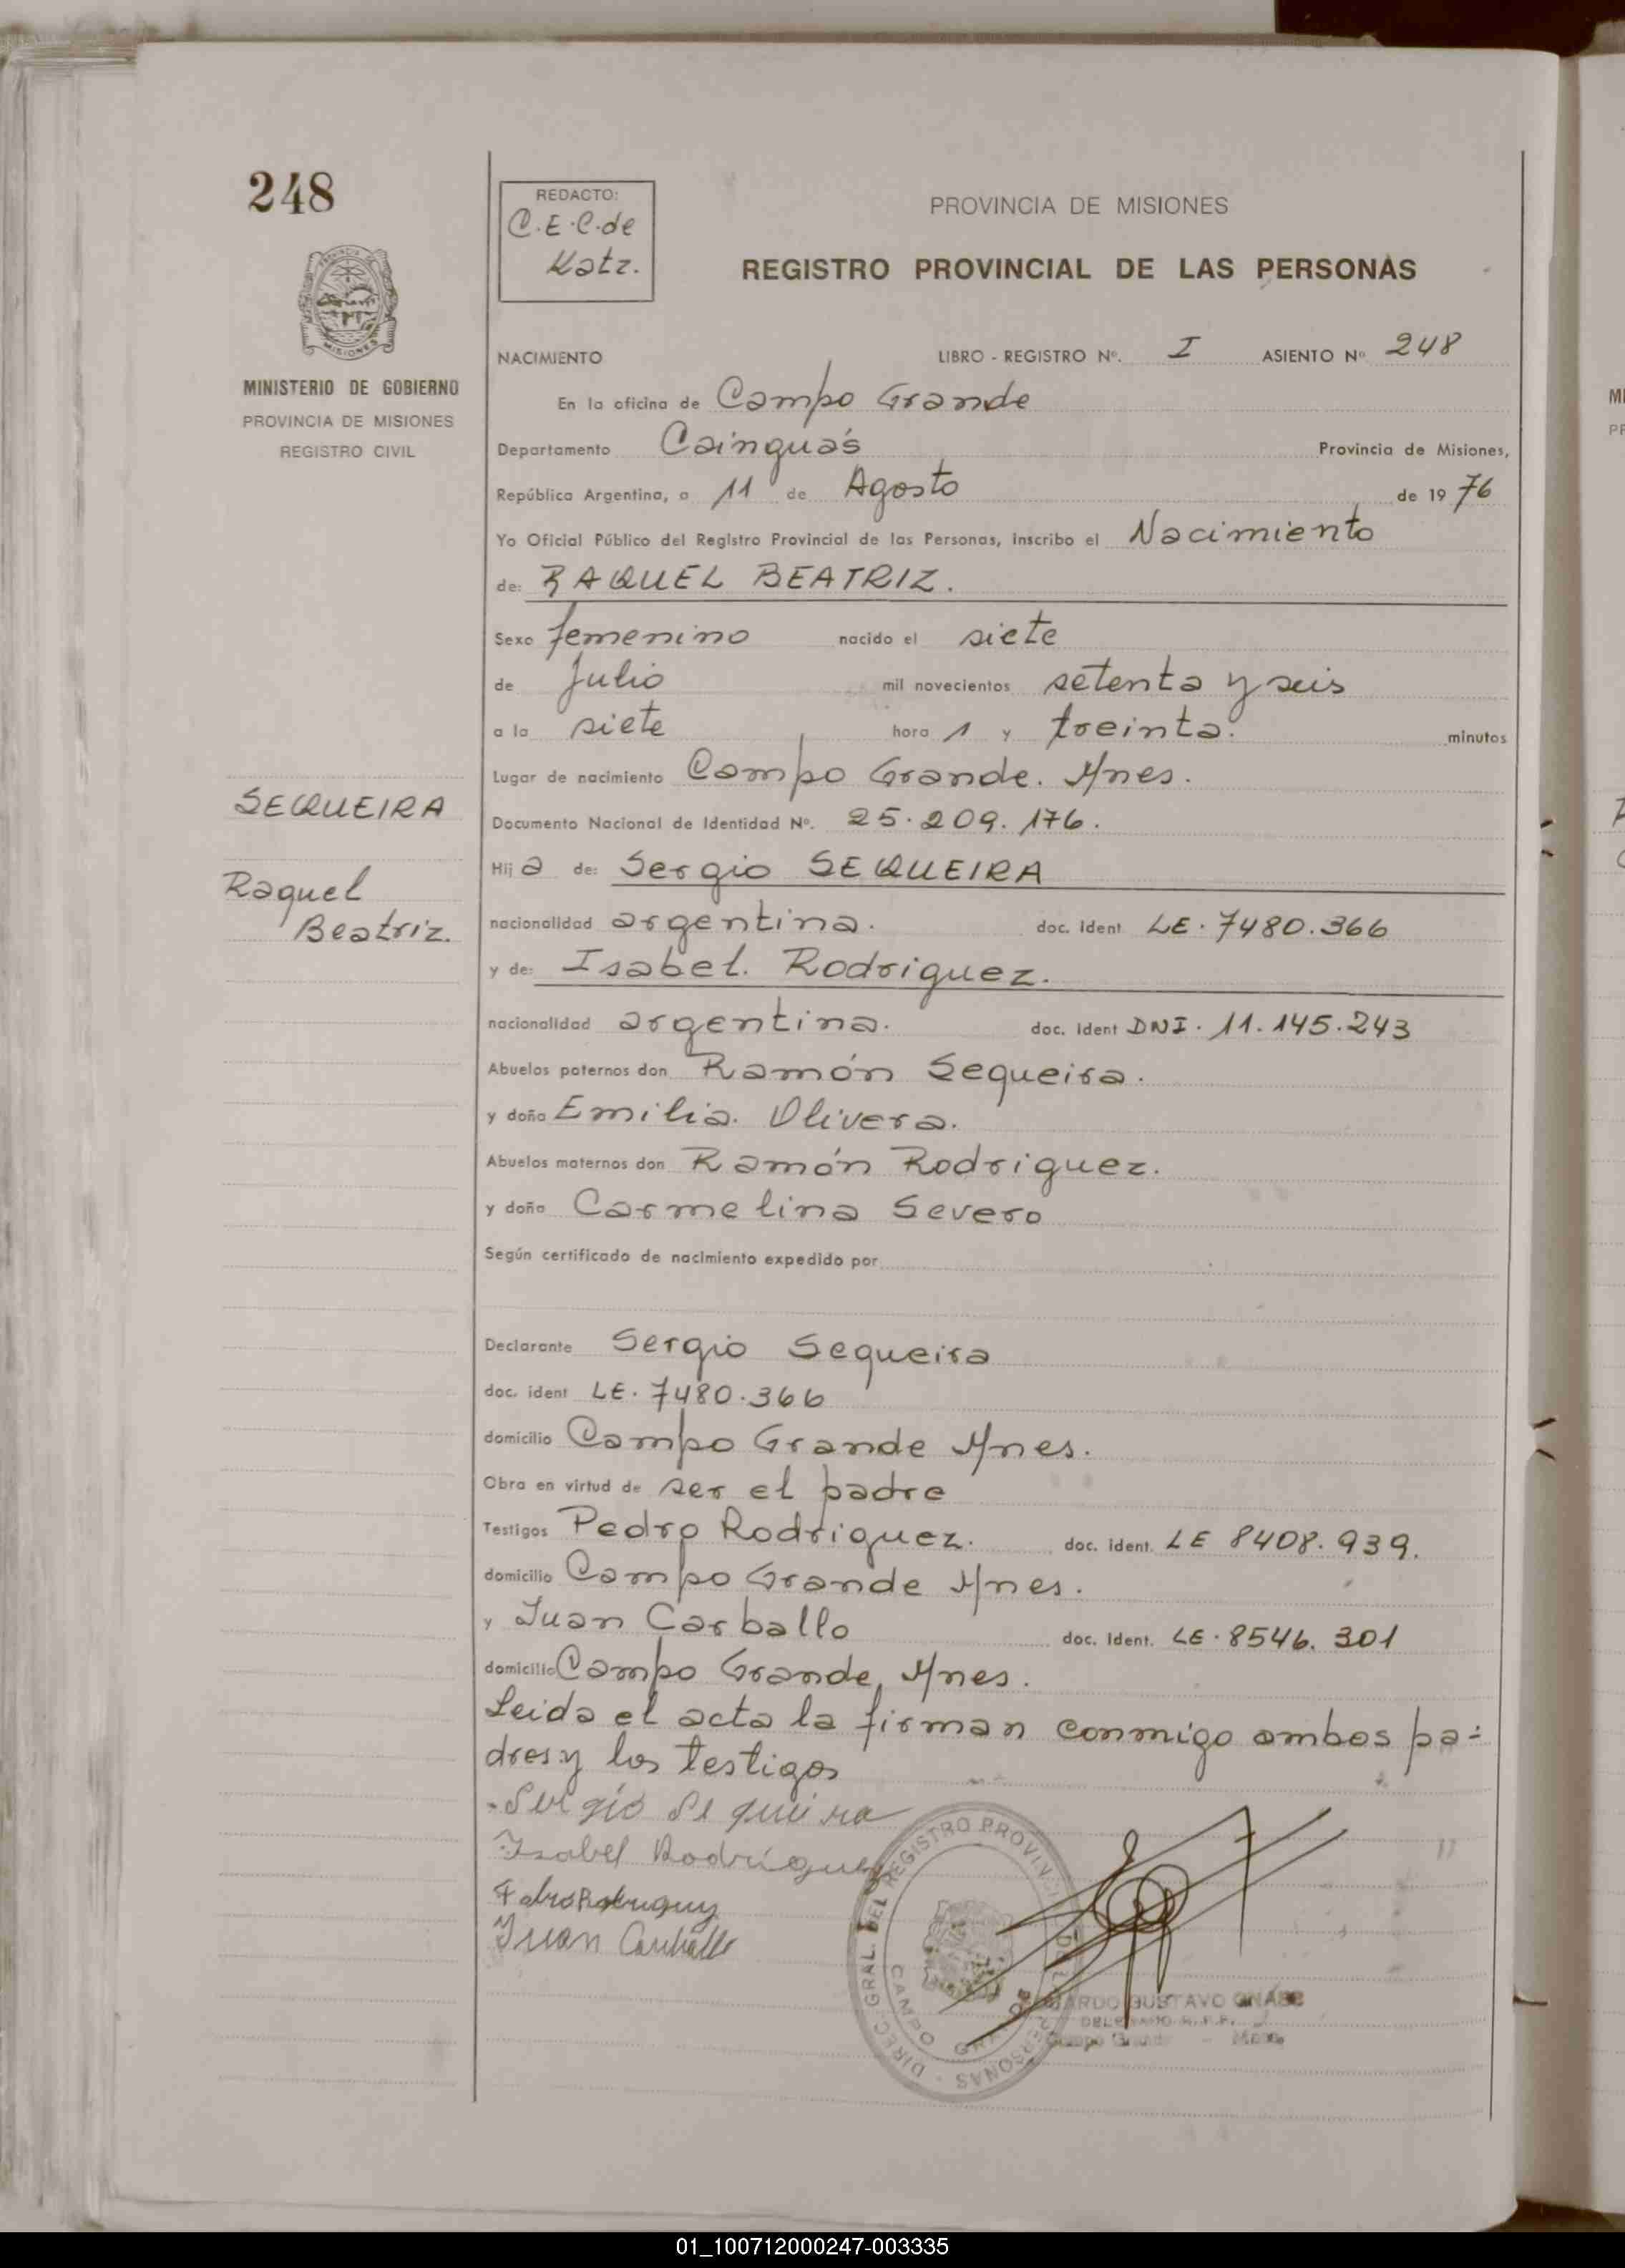 248
REDACTO:
C.E.C.de
Katz.
PROVINCIA DE MISIONES
REGISTRO PROVINCIAL DE LAS PERSONAS
MISIONES
MINISTERIO DE GOBIERNO
PROVINCIA DE MISIONES
REGISTRO CIVIL
NACIMIENTO LIBRO - REGISTRO Nº. I ASIENTO Nº 248
En la oficina de Campo Grande
Departamento Cainguás Provincia de Misiones,
República Argentina, a 11 de Agosto de 19 76
Yo Oficial Público del Registro Provincial de las Personas, inscribo el Nacimiento
de: RAQUEL BEATRIZ.
Sexo femenino nacido el siete
de Julio mil novecientos setenta y seis
a la siete hora 1 y treinta. minutos
Lugar de nacimiento Campo Grande. Mnes.
Documento Nacional de Identidad Nº. 25.209.176.
SEQUEIRA
Raquel
Beatriz.
Hij a de: Sergio SEQUEIRA
nacionalidad argentina. doc. ident LE. 7480.366
y de: Isabel. Rodriguez.
nacionalidad argentina. doc. ident DNI. 11.145.243
Abuelos paternos don Ramón Sequeira.
y doña Emilia. Olivera.
Abuelos maternos don Ramón Rodriguez.
y doña Carmelina Severo
Según certificado de nacimiento expedido por
Declarante Sergio Sequeira
doc. ident LE. 7480.366
domicilio Campo Grande Mnes.
Obra en virtud de ser el padre
Testigos Pedro Rodriguez. doc. ident. LE 8408.939.
domicilio Campo Grande Mnes.
y Juan Carballo doc. ident. LE. 8546.301
domicilio Campo Grande, Mnes.
Leida el acta la firman conmigo ambos pa-
dres y los testigos
Sergio Sequeira
Isabel Rodríguez
Juan Carballo
DIREC. GRAL. DEL REGISTRO PROVINCIAL DE LAS PERSONAS
CAMPO GRANDE
GUSTAVO
DELEGADO R.P.P.
Campo Grande - Mnes.
01_100712000247-003335